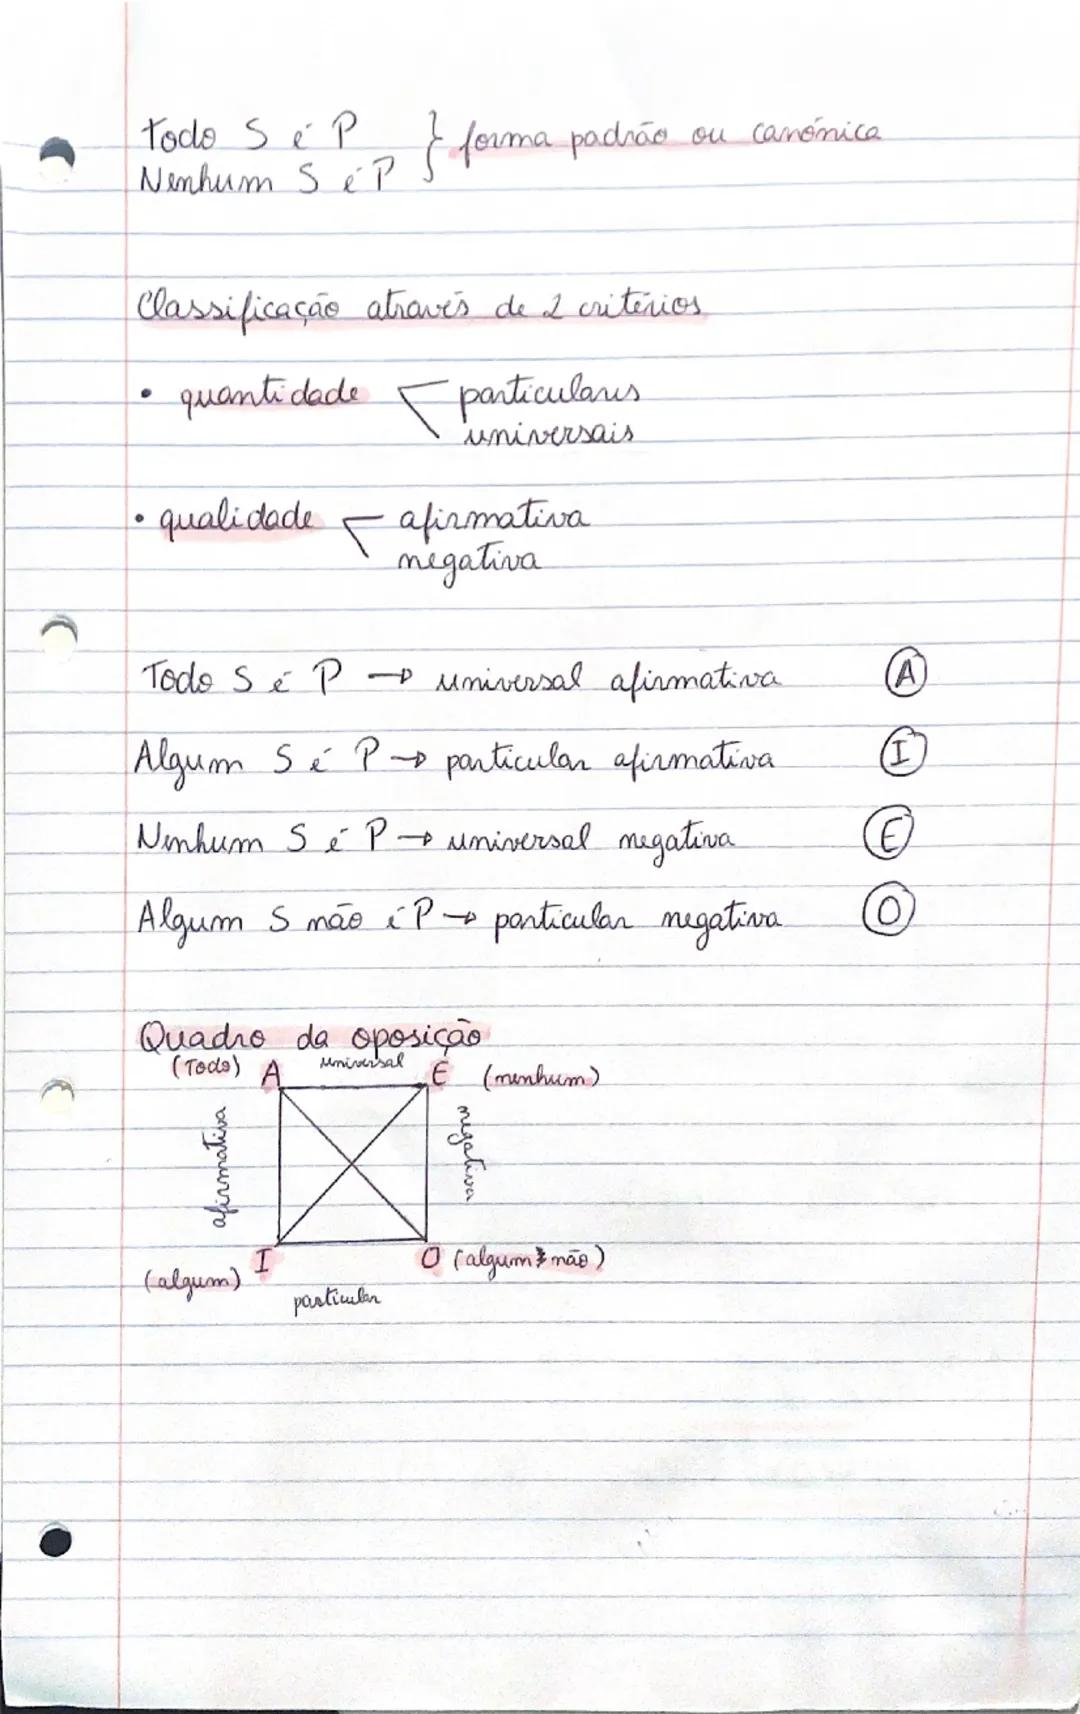 Todo S é P } forma padrão ou canónica
Nenhum S é P
Classificação através de 2 critérios
• quantidade particulares
universais
• qualidade afirmativa
negativa
Todo S é P → universal afirmativa A
Algum S é P → particular afirmativa I
Nenhum S é P → universal negativa E
Algum S não é P → particular negativa O
Quadro da oposição
(Todo) A universal E (nenhum)
afirmativa
negativa
(algum) I O (algum não)
particular